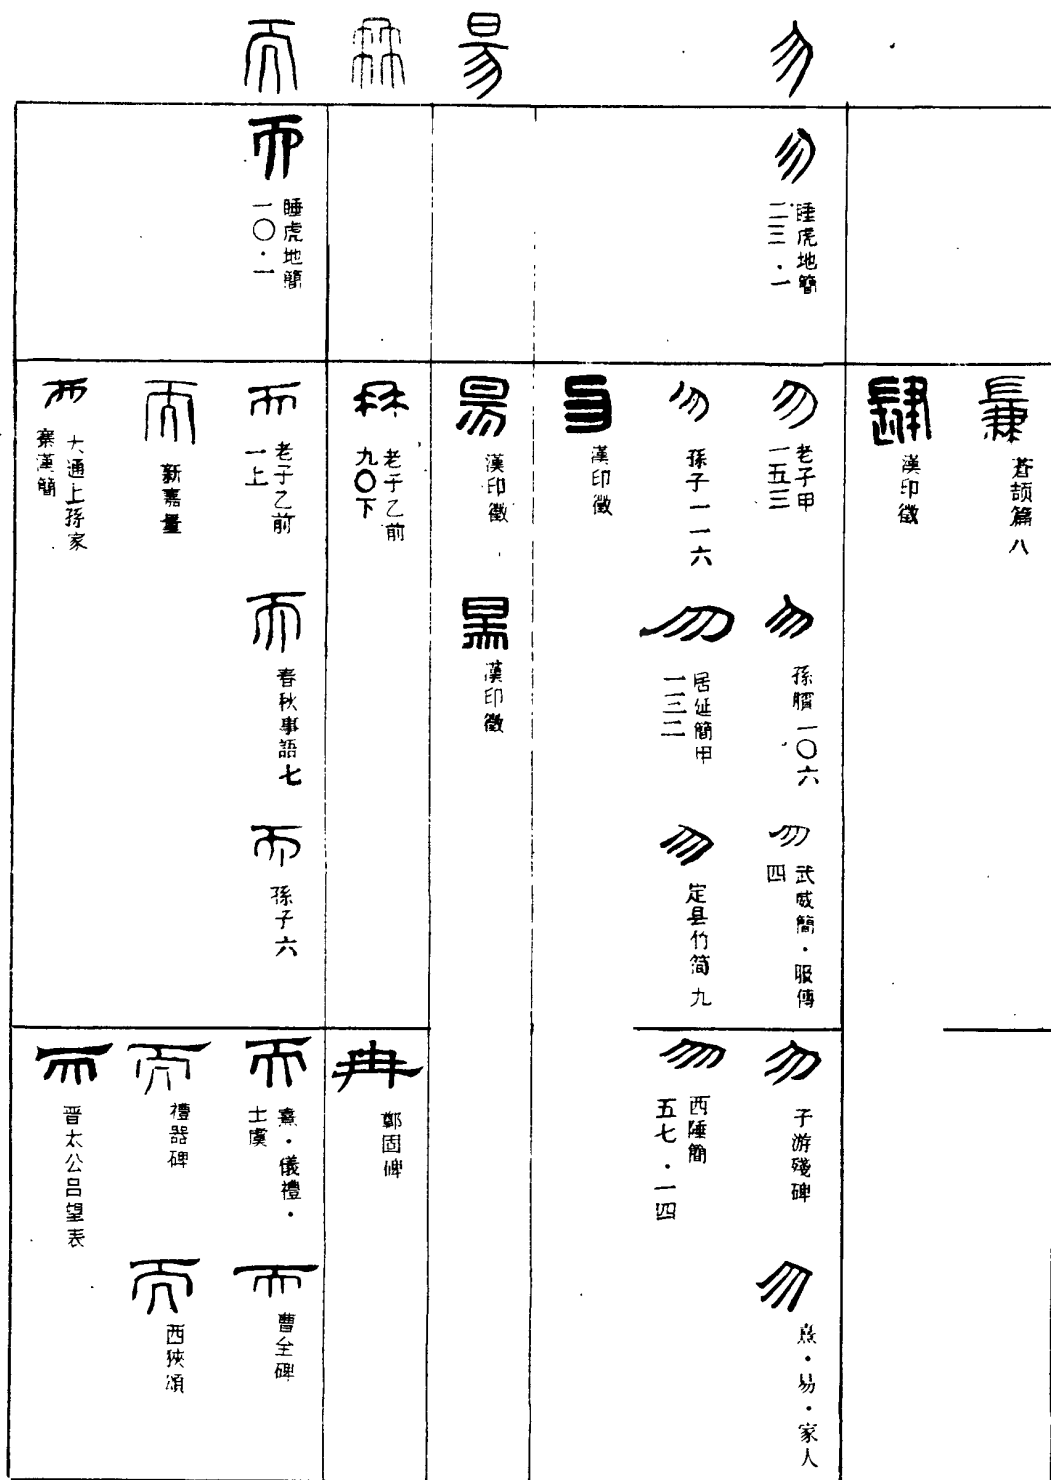 勿
昜
冄
而
勿
睡虎地簡
二三·一
而
睡虎地簡
一〇·一
蒼頡篇八
肆
漢印徵
勿
老子甲
一五三
勿
孫臏一〇六
勿
武威簡·服傳
四
勿
孫子一一六
勿
居延簡甲
一三二
勿
定县竹简九
漢印徵
昜
漢印徵
昜
漢印徵
老子乙前
九〇下
而
老子乙前
一上
而
春秋事語七
而
孫子六
而
新嘉量
而
大通上孫家
寨漢簡
勿
子游殘碑
勿
熹·易·家人
勿
西陲簡
五七·一四
冉
鄭固碑
而
熹·儀禮·
士虞
而
曹全碑
而
禮器碑
而
西狹頌
而
晉太公吕望表